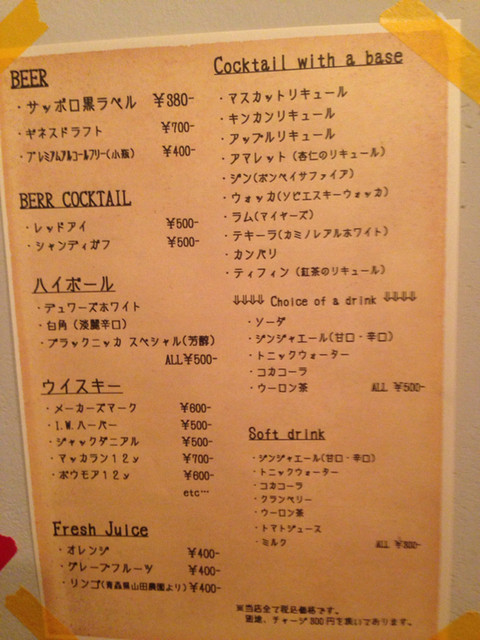 BEER
・サッポロ黒ラベル ¥380-
・ギネスドラフト ¥700-
・プレミアムアルコールフリー(小瓶) ¥400-
BERR COCKTAIL
・レッドアイ ¥500-
・シャンディガフ ¥500-
ハイボール
・デュワーズホワイト
・白角(淡麗辛口)
・ブラックニッカ スペシャル(芳醇)
ALL¥500-
ウイスキー
・メーカーズマーク ¥600-
・I.W.ハーパー ¥500-
・ジャックダニアル ¥500-
・マッカラン12y ¥700-
・ボウモア12y ¥600-
etc…
Fresh Juice
・オレンジ ¥400-
・グレープフルーツ ¥400-
・リンゴ(青森県山田農園より) ¥400-
Cocktail with a base
・マスカットリキュール
・キンカンリキュール
・アップルリキュール
・アマレット(杏仁のリキュール)
・ジン(ボンベイサファイア)
・ウォッカ(ソビエスキーウォッカ)
・ラム(マイヤーズ)
・テキーラ(カミノレアルホワイト)
・カンパリ
・ティフィン(紅茶のリキュール)
⇓⇓⇓⇓ Choice of a drink ⇓⇓⇓⇓
・ソーダ
・ジンジャエール(甘口・辛口)
・トニックウォーター
・コカコーラ
・ウーロン茶 ALL ¥500-
Soft drink
・ジンジャエール(甘口・辛口)
・トニックウォーター
・コカコーラ
・クランベリー
・ウーロン茶
・トマトジュース
・ミルク ALL ¥300-
※当店全て税込価格です。
別途、チャージ300円を頂いております。